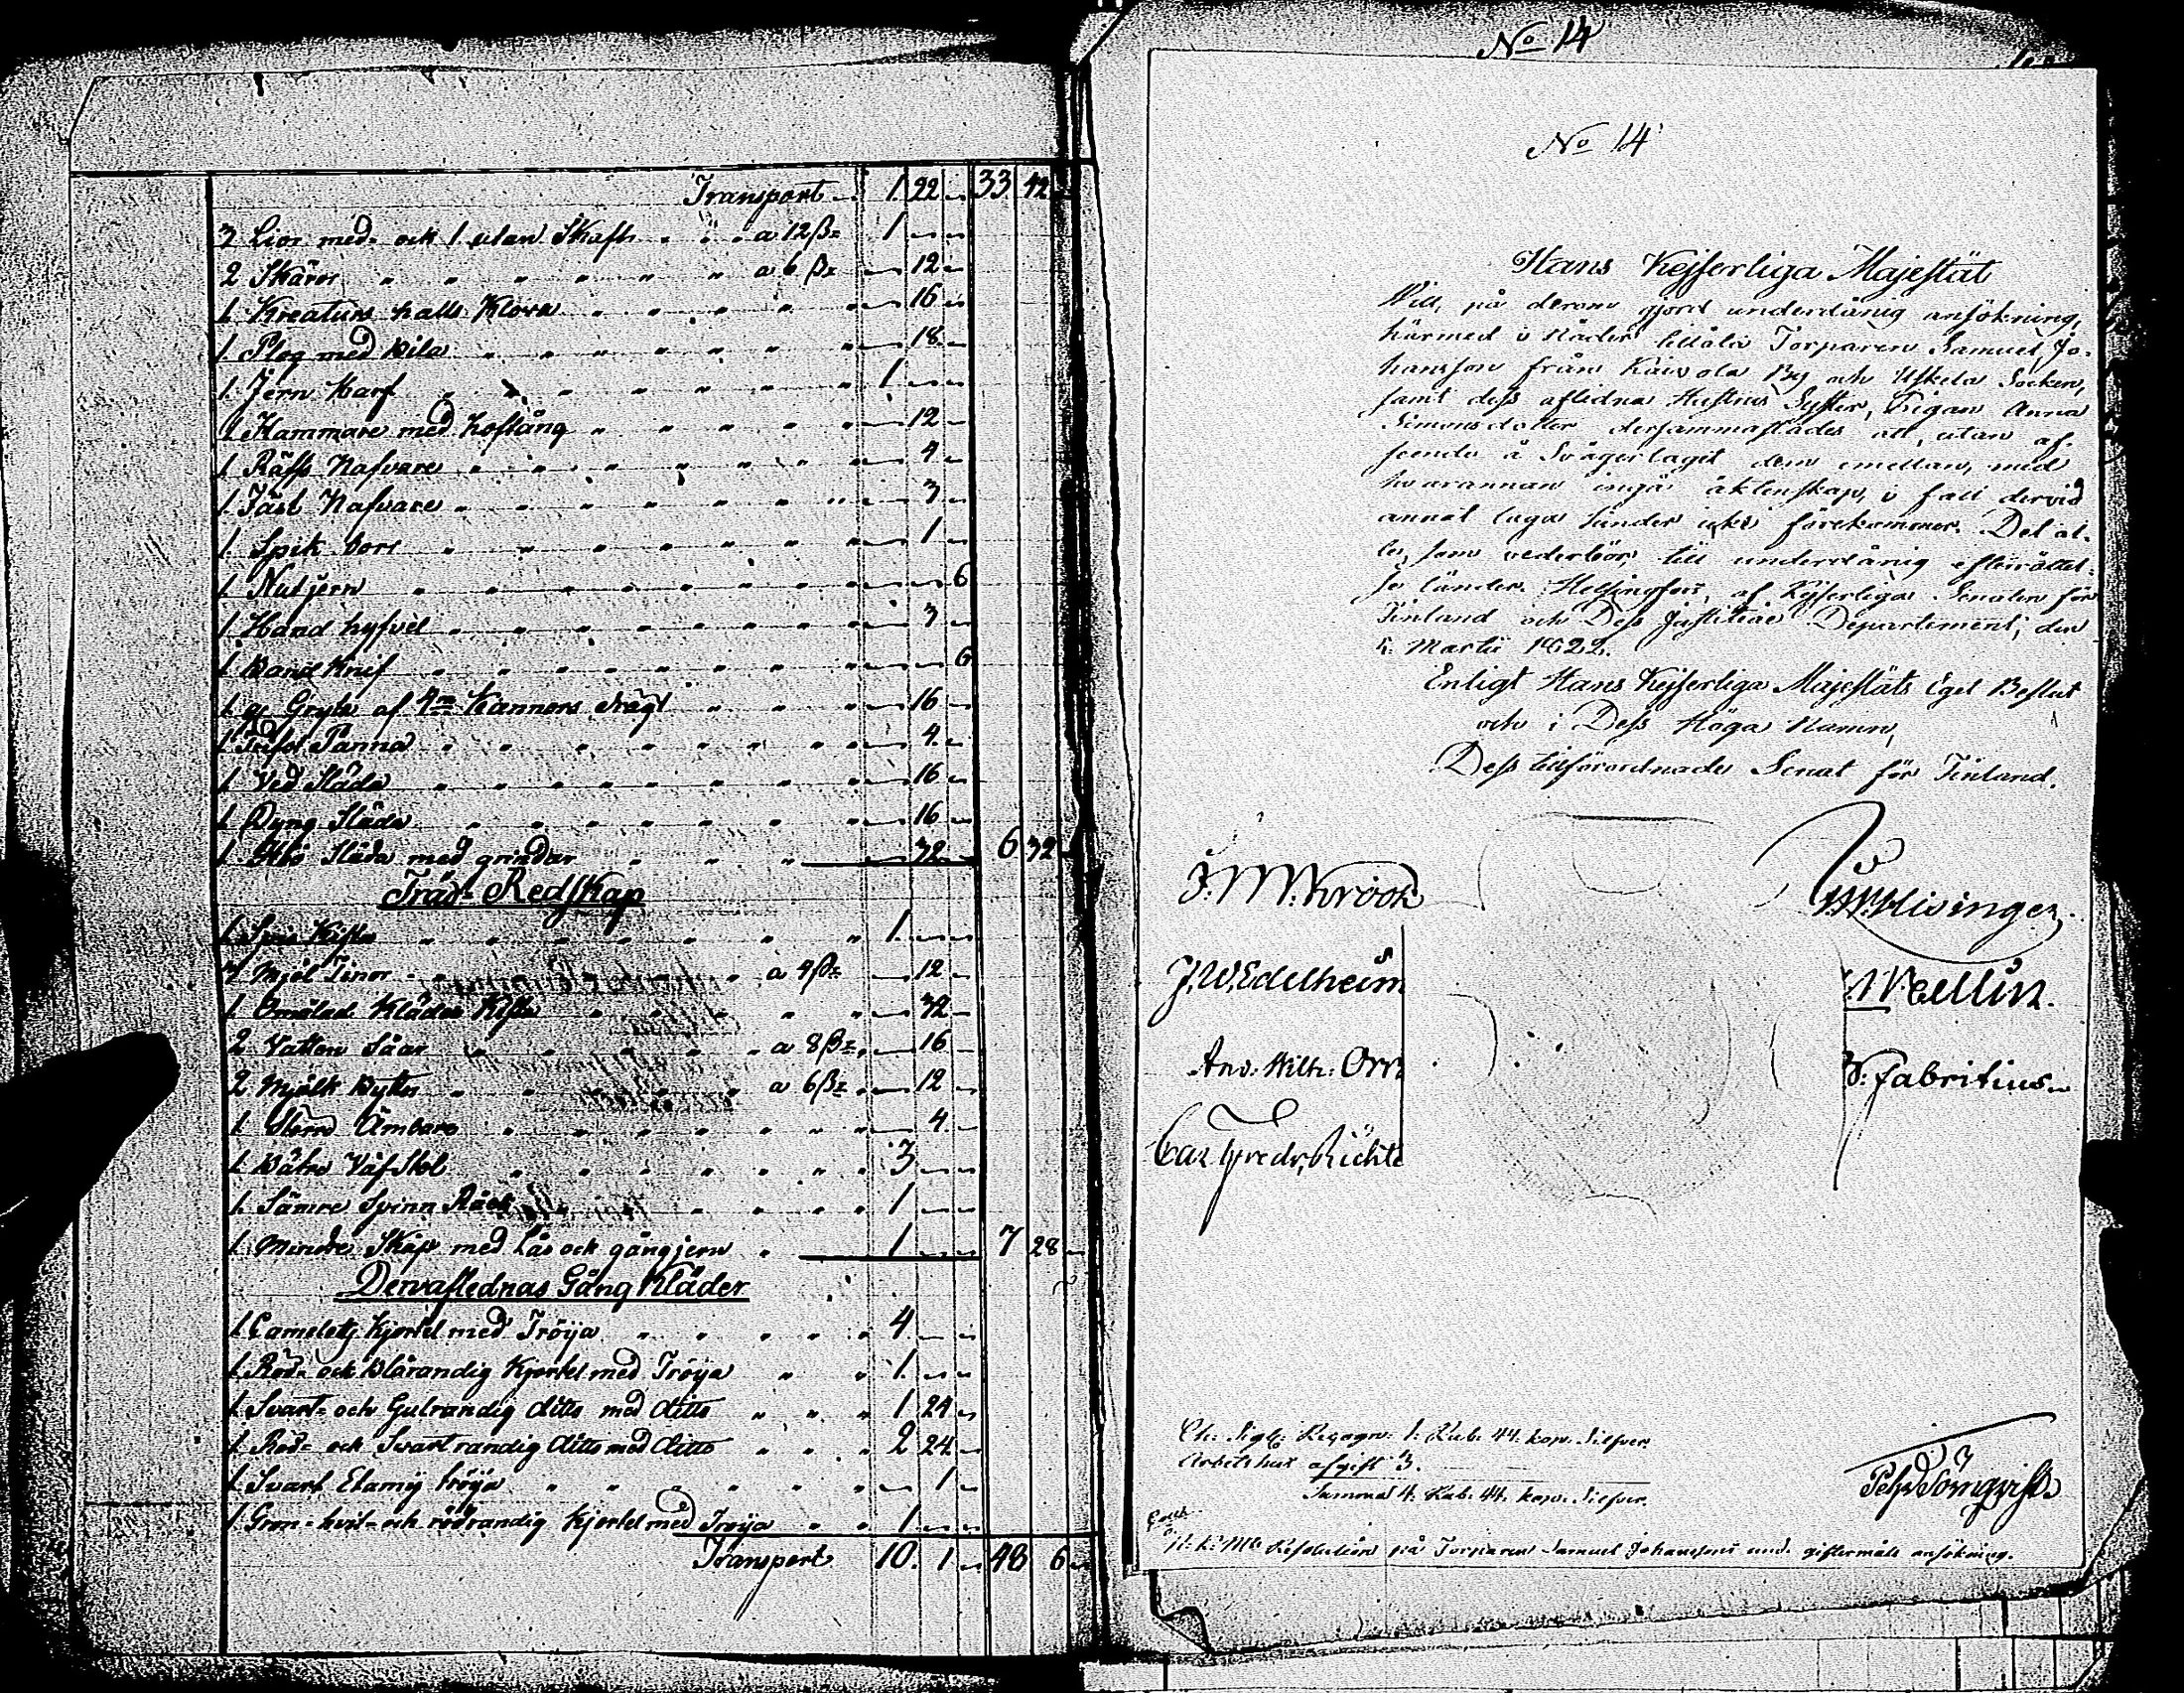 Transport 1 22 33 42
3 Lior med- och 1 utan Skaft a 12 ßr 1
2 Skäror a 6 ßr 12
1 Kreaturs halls Klova 16
1 Plog med bila 18
1 Jern Harf 1
1 Hammare med hoftång 12
1 Räffs Nafvare 4
1 Täst Nafvare 3
1 Spik borr 1
1 Nutjern 6
1 Hand hyfvel 3
1 Band Knif 6
1 Gryta af 4ra Kannors drägt 16
1 Panna 4
1 Ved Släda 16
1 Dyng Släda 16
1 Hö Släda med grindar 32 6 32
Träd- Redskap
1 Kista 1
3 Mjöl Tinor a 4 ßr 12
1 Omålad Kläder Kista 32
2 Vatten Såar a 8 ßr 16
2 Mjölk Byttor a 6 ßr 12
1 Ämbare 4
1 Bätre Väf Stol 3
1 Sämre Spinn Råck 1
1 Mindre Skåp med Lås och gångjern 1 7 28
Den aflednas Gång Kläder
1 Camelots Kjortel med Tröija 4
1 Röd- och Blårandig Kjortel med Tröya 1
1 Svart- och Gulrandig ditto med ditto 1 24
1 Röd- och Svart randig ditto med ditto 2 24
1 Svart Etamij tröija 1
1 Grön- hvit- och rödrandig Kjortel med Tröija 1
Transport 10 1 48 6
No 14
No 14
Hans Kejserliga Majestät
Vill, på derom gjord underdånig ansökning,
härmed i Nåder tillåta Torparen Samuel Jo-
hansson från Kaivola By och Uskela Socken,
samt dess aflidna Hustrus Syster, Pigan Anna
Simonsdotter dersammastädes att, utan af-
seende å Svågerlaget dem emellan, med
hvarannan ingå äktenskap, i fall dervid
annat laga hinder icke förekommer. Det al-
le, som vederbör, till underdånig efterrättel-
se länder. Helsingfors, af Kejserliga Senaten för
Finland och Dess Justitiae Departement, den
5 Martii 1822.
Enligt Hans Kejserliga Majestäts Eget Beslut
och i Dess Höga Namn,
Dess tillförordnade Senat för Finland.
Krook
Hisinger.
J. W. Edelheim
Mellin.
And. Wilh. Orr
W. Fabritius.
Carl Fredr. Richte
Ch. Sig. Recogn. 1. Rub. 44. kop. Silfver.
Arbetshus afgift 3.
Summa 4. Rub. 44. kop. Silfver.
Pehr Törnqvist.
H. K. Mts Resolution på Torparen Samuel Johanssons und. giftermåls ansökning.